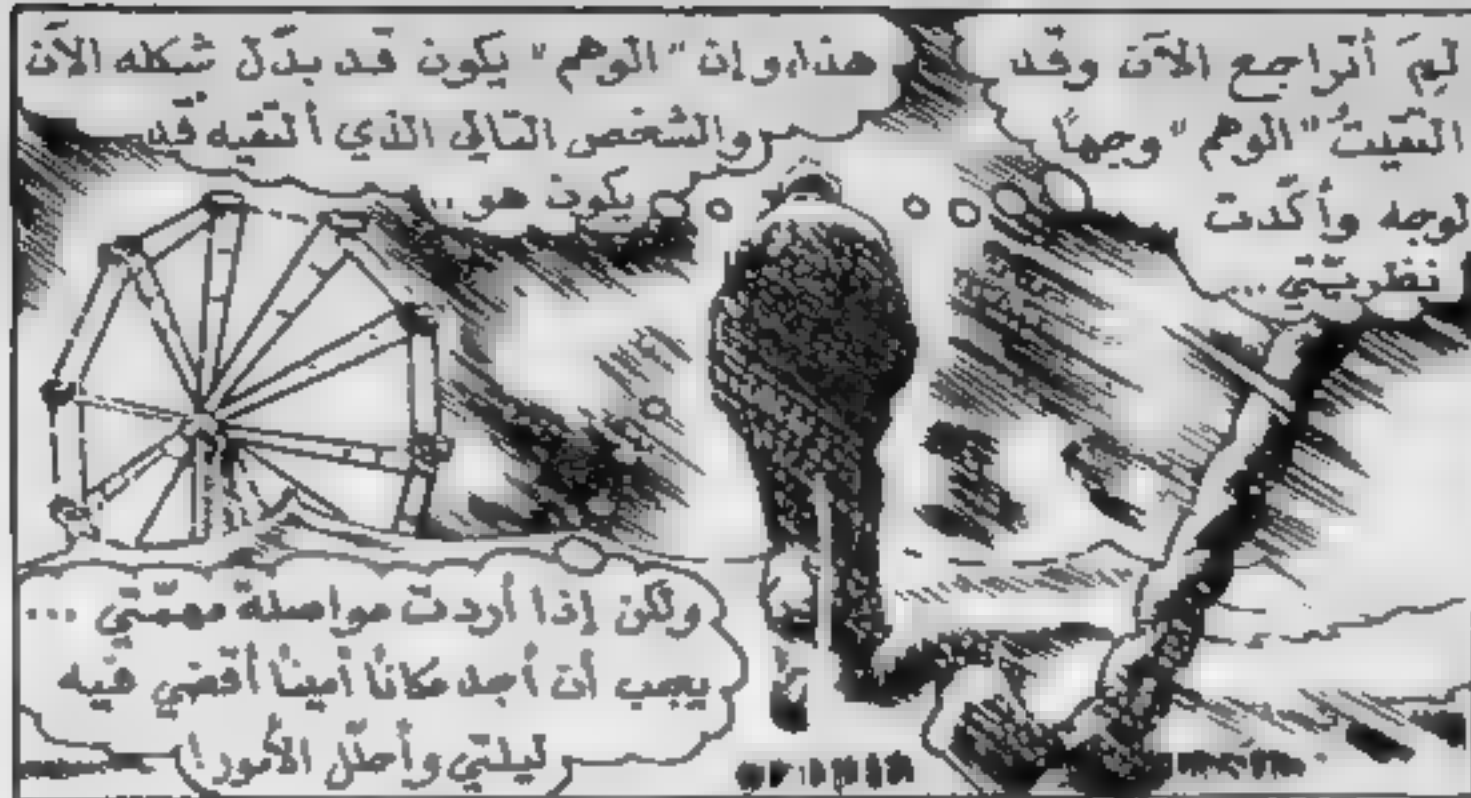 لِمَ أتراجع الآن وقد
التقيتُ "الوهم" وجهًا
لوجه وأكّدت
نظريّتي ...
هذا، وإن "الوهم" يكون قد بدّل شكله الآن
والشخص التالي الذي ألتقيه قد
يكون هو ..
ولكن إذا أردت مواصلة مهمّتي ...
يجب أن أجد مكانًا أمينًا أقضي فيه
ليلتي وأحلّل الأمور!